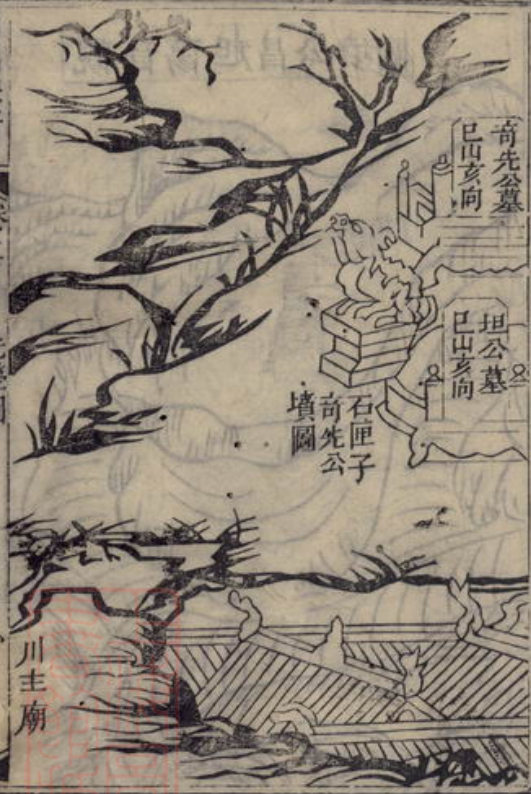 奇先公墓
巳山亥向
坦公墓
巳山亥向
石匣子
奇先公
墳圖
川主廟